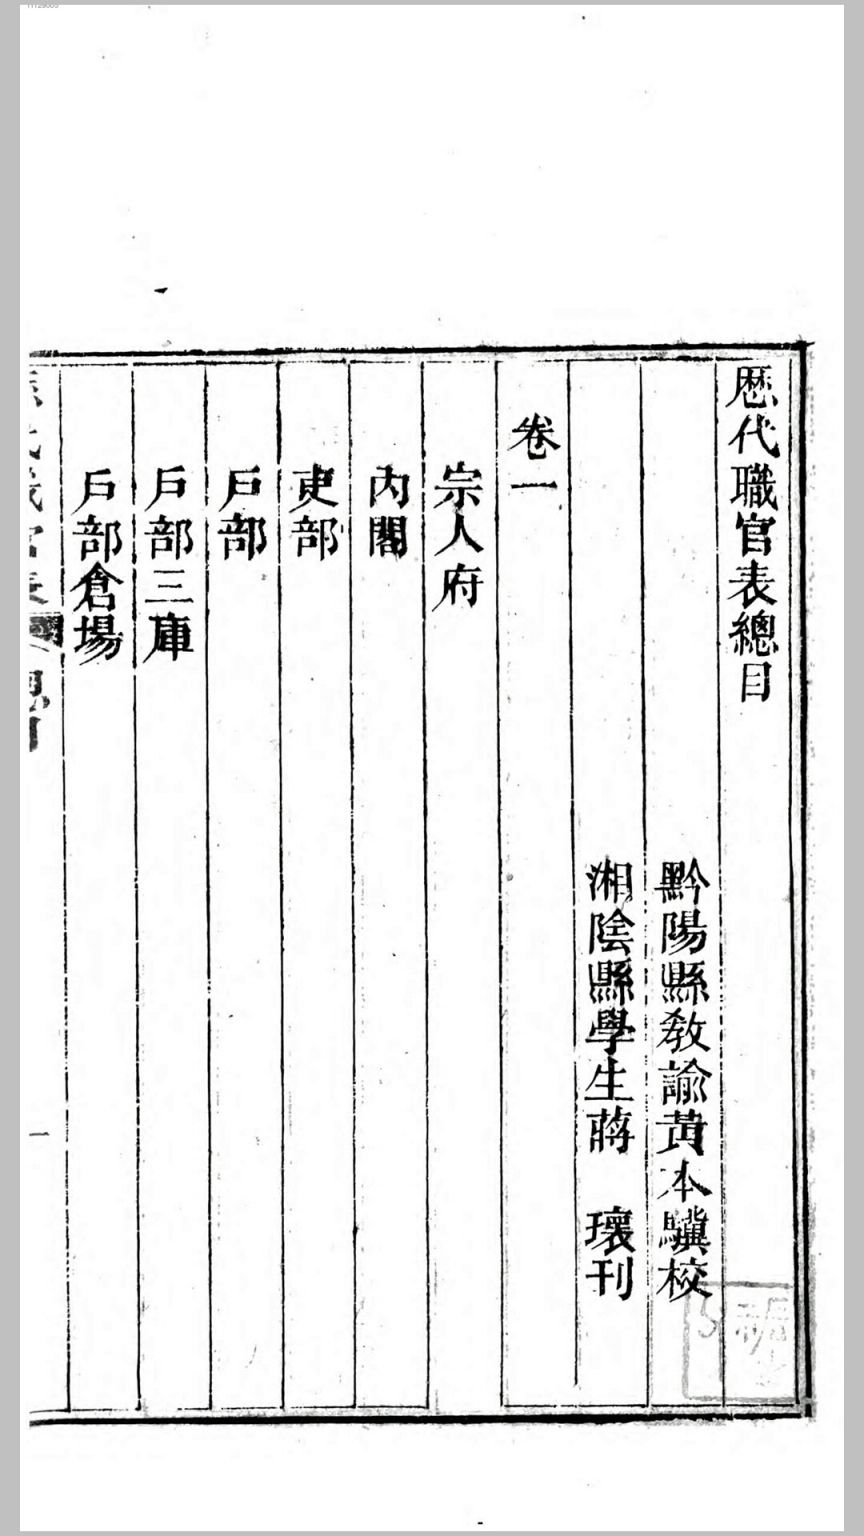 歷代職官表總目
黔陽縣教諭黃本驥校
湘陰縣學生蔣　瓌刊
卷一
宗人府
內閣
吏部
戶部
戶部三庫
戶部倉場